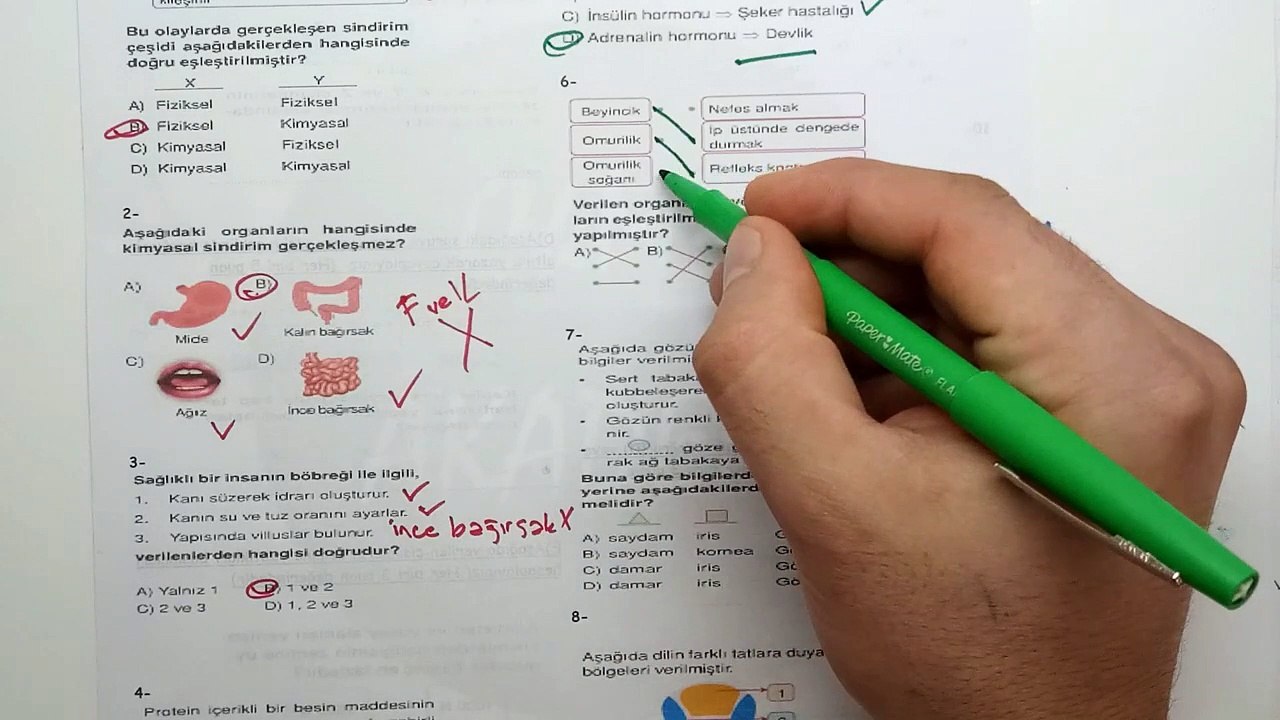 Bu olaylarda gerçekleşen sindirim
çeşidi aşağıdakilerden hangisinde
doğru eşleştirilmiştir?
X Y
A) Fiziksel Fiziksel
B) Fiziksel Kimyasal
C) Kimyasal Fiziksel
D) Kimyasal Kimyasal
2-
Aşağıdaki organların hangisinde
kimyasal sindirim gerçekleşmez?
A) B)
Mide Kalın bağırsak
F ve
C) D)
Ağız İnce bağırsak
3-
Sağlıklı bir insanın böbreği ile ilgili,
1. Kanı süzerek idrarı oluşturur.
2. Kanın su ve tuz oranını ayarlar.
3. Yapısında villuslar bulunur. ince bağırsak X
verilenlerden hangisi doğrudur?
A) Yalnız 1 B) 1 ve 2
C) 2 ve 3 D) 1, 2 ve 3
4-
Protein içerikli bir besin maddesinin
C) İnsülin hormonu ⇒ Şeker hastalığı
D) Adrenalin hormonu ⇒ Devlik
6-
Beyincik Nefes almak
Omurilik İp üstünde dengede
durmak
Omurilik Refleks
soğanı
Verilen
ların
yapılmıştır?
A) B)
7-
Aşağıda
bilgiler
- Sert
oluşturur.
- Gözün renkli
nir.
- ............ göze
rak ağ tabakaya
Buna göre
yerine
melidir?
A) saydam iris
B) saydam kornea
C) damar iris
D) damar iris
8-
Aşağıda dilin farklı tatlara
bölgeleri verilmiştir.
1
Paper Mate FLAI